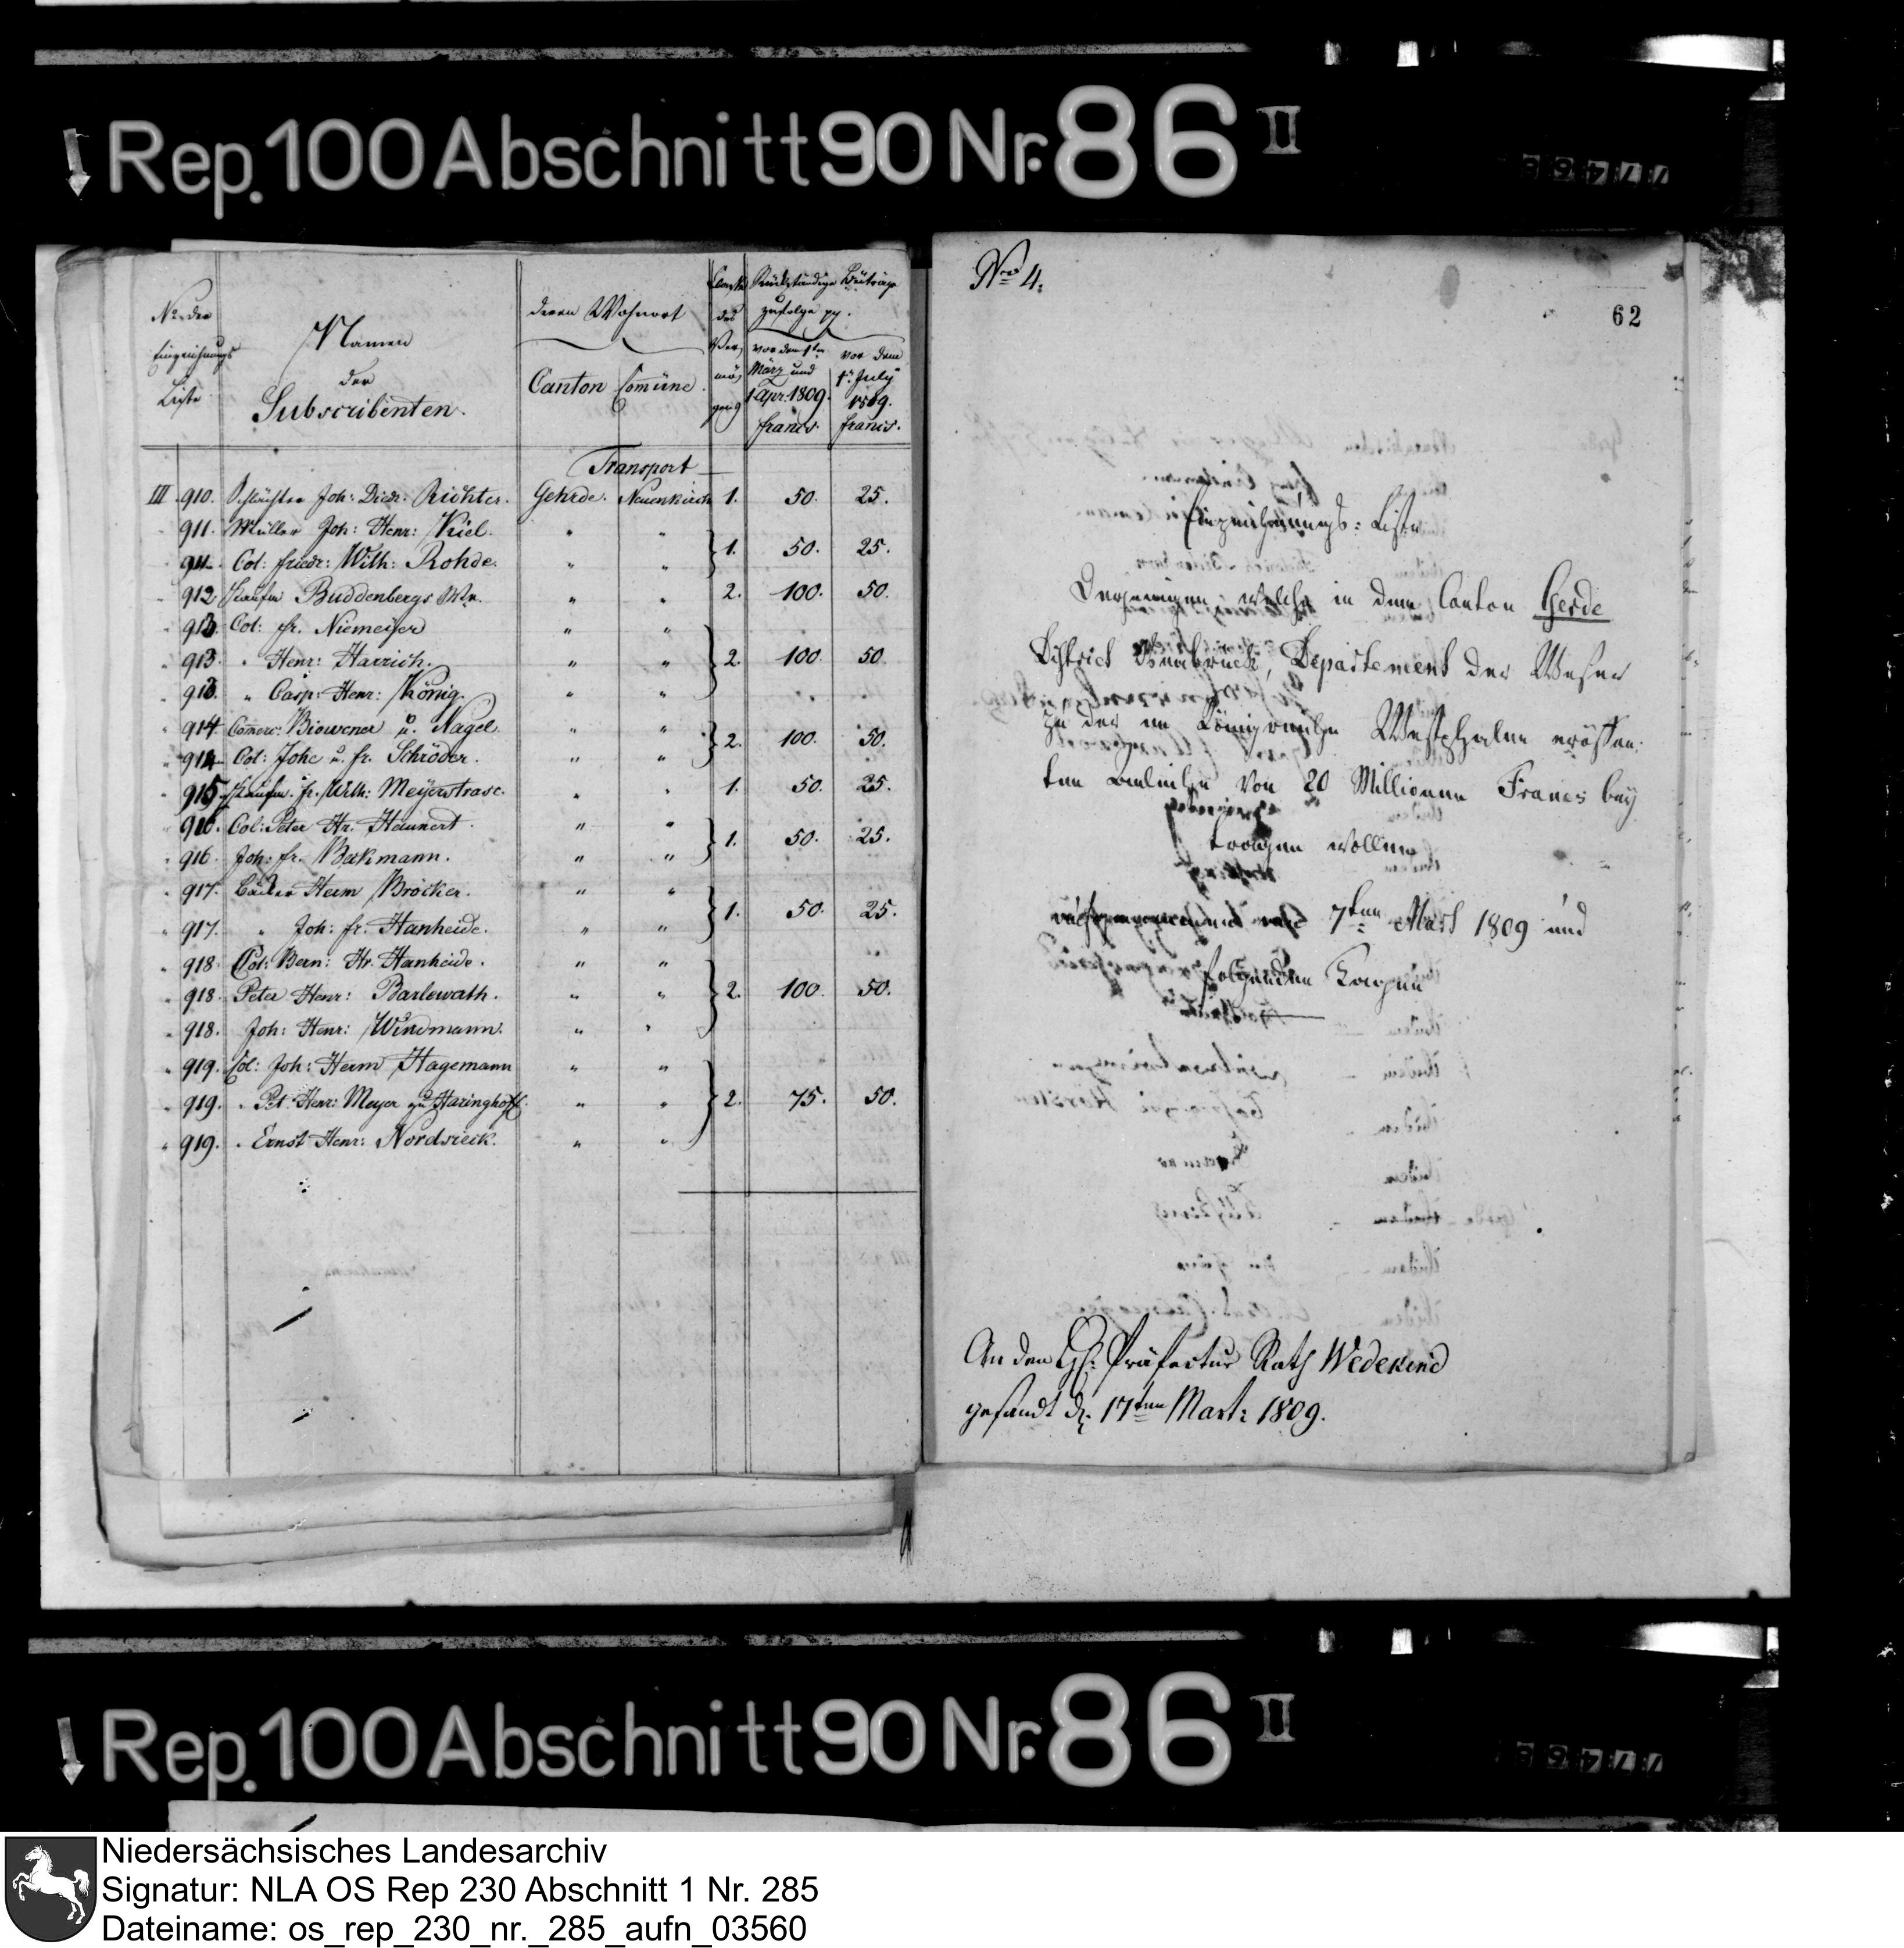 Rep. 100 Abschnitt 90 Nr. 86 II
No. der Einzeichnungs Liste
Namen der Subscribenten.
deren Wohnort
Canton Comüne.
Classe des Vermögens
Rückständige Beiträge zufolge pp.
vor dem 1ten März und 1 Apr. 1809. francs.
vor dem 1t. July 1809. francs.
Transport
III 910. Joh: Diedr: Richter. Gehrde. Neuenkirch 1. 50. 25.
" 911. Müller Joh: Henr: Kiel. " "
911. Col: friedr: Wilh: Rohde. " " } 1. 50. 25.
" 912 Kaufm Buddenbergs Wwe. " " 2. 100. 50.
" 913. Col: fr. Niemeyer " "
" 913. " Henr: Harrich. " " } 2. 100. 50.
" 913. " Casp: Henr: König. " "
" 914. Commerc: Biowener u. Nagel " "
" 914. Col: Johe u. fr. Schröder. " " } 2. 100. 50.
" 915. Kaufm. fr. Wilh: Meyerstrase. " " 1. 50. 25.
916. Col: Peter Hr. Haunert. " "
" 916. Joh: fr. Beckmann. " " } 1. 50. 25.
" 917. Herm Bröcker. " "
" 917. " Joh: fr. Hanheide. " " } 1. 50. 25.
" 918. Col: Bern: Hr. Hanheide. " "
" 918. Peter Henr: Barlewath. " " } 2. 100. 50.
" 918. Joh: Henr: Windmann. " "
" 919. Col: Joh: Herm Hagemann " "
" 919. " Pet: Henr: Meyer zu Haringhoff. " " } 2. 75. 50.
" 919. " Ernst Henr: Nordsieck. " "
Nro 4.
62
Einzeichnungs: Liste
Derjenigen, welche in dem Canton Gerde
District Osnabrück, Departement der Weser
zu der im Königreiche Westphalen eröffne:
ten Anleihe von 20 Millionen Francs bey
tragen wollen
7ten Mart 1809 und
folgenden Tagen
An den H. Präfectur Rath Wedekind
gesandt d. 17ten Mart: 1809.
Rep. 100 Abschnitt 90 Nr. 86 II
Niedersächsisches Landesarchiv
Signatur: NLA OS Rep 230 Abschnitt 1 Nr. 285
Dateiname: os_rep_230_nr._285_aufn_03560